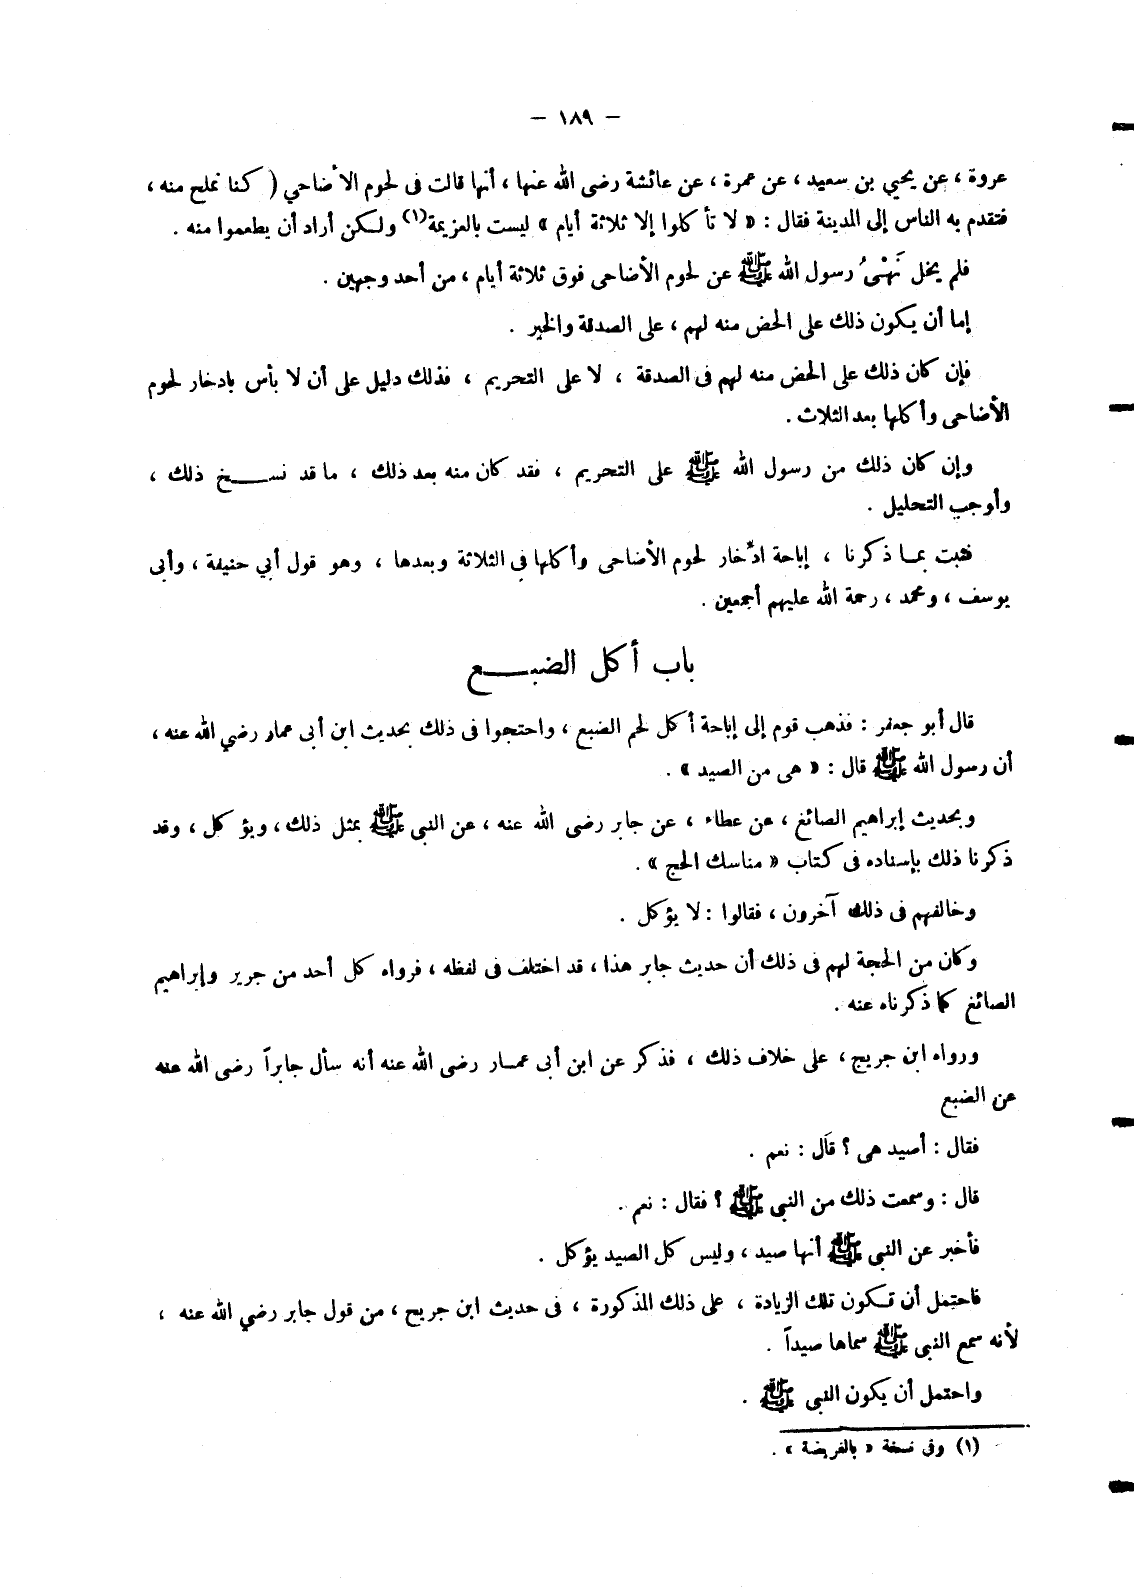 — ١٨٩ —
عروة ، عن يحيي بن سعيد ، عن عمرة ، عن عائشة رضى الله عنها ، أنها قالت فى لحوم الأضاحي ( كنا نملح منه ،
فتقدم به الناس إلى المدينة فقال : « لا تأكلوا إلا ثلاثة أيام » ليست بالعزيمة(١) ولكن أراد أن يطعموا منه .
فلم يخل نَهْىُ رسول الله ﷺ عن لحوم الأضاحى فوق ثلاثة أيام ، من أحد وجهين .
إما أن يكون ذلك على الحض منه لهم ، على الصدقة والخير .
فإن كان ذلك على الحض منه لهم فى الصدقة ، لا على التحريم ، فذلك دليل على أن لا بأس بادخار لحوم
الأضاحى وأكلها بعد الثلاث .
وإن كان ذلك من رسول الله ﷺ على التحريم ، فقد كان منه بعد ذلك ، ما قد نسخ ذلك ،
وأوجب التحليل .
فثبت بما ذكرنا ، إباحة ادّخار لحوم الأضاحى وأكلها في الثلاثة وبعدها ، وهو قول أبي حنيفة ، وأبى
يوسف ، ومحمد ، رحمة الله عليهم أجمعين .
باب أكل الضبع
قال أبو جعفر : فذهب قوم إلى إباحة أكل لحم الضبع ، واحتجوا فى ذلك بحديث ابن أبى عمار رضي الله عنه ،
أن رسول الله ﷺ قال : « هى من الصيد » .
وبحديث إبراهيم الصائغ ، عن عطاء ، عن جابر رضى الله عنه ، عن النبي ﷺ بمثل ذلك ، ويؤكل ، وقد
ذكرنا ذلك بإسناده فى كتاب « مناسك الحج » .
وخالفهم فى ذلك آخرون ، فقالوا : لا يؤكل .
وكان من الحجة لهم فى ذلك أن حديث جابر هذا ، قد اختلف فى لفظه ، فرواه كل أحد من جرير وإبراهيم
الصائغ كما ذكرناه عنه .
ورواه ابن جريج ، على خلاف ذلك ، فذكر عن ابن أبى عمار رضى الله عنه أنه سأل جابراً رضى الله عنه
عن الضبع
فقال : أصيد هى ؟ قال : نعم .
قال : وسمعت ذلك من النبى ﷺ ؟ فقال : نعم .
فأخبر عن النبى ﷺ أنها صيد ، وليس كل الصيد يؤكل .
فاحتمل أن تكون تلك الزيادة ، على ذلك المذكورة ، فى حديث ابن جريج ، من قول جابر رضي الله عنه ،
لأنه سمع النبى ﷺ سماها صيداً .
واحتمل أن يكون النبى ﷺ .
(١) وفى نسخة « بالفريضة » .